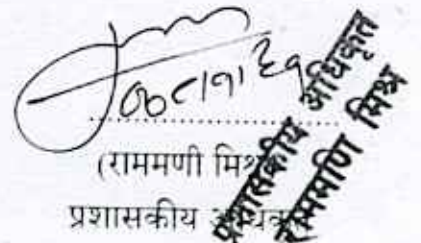 (राममणी मिश्र
प्रशासकीय अधिकृत
प्रशासकीय अधिकृत
राममणि मिश्र